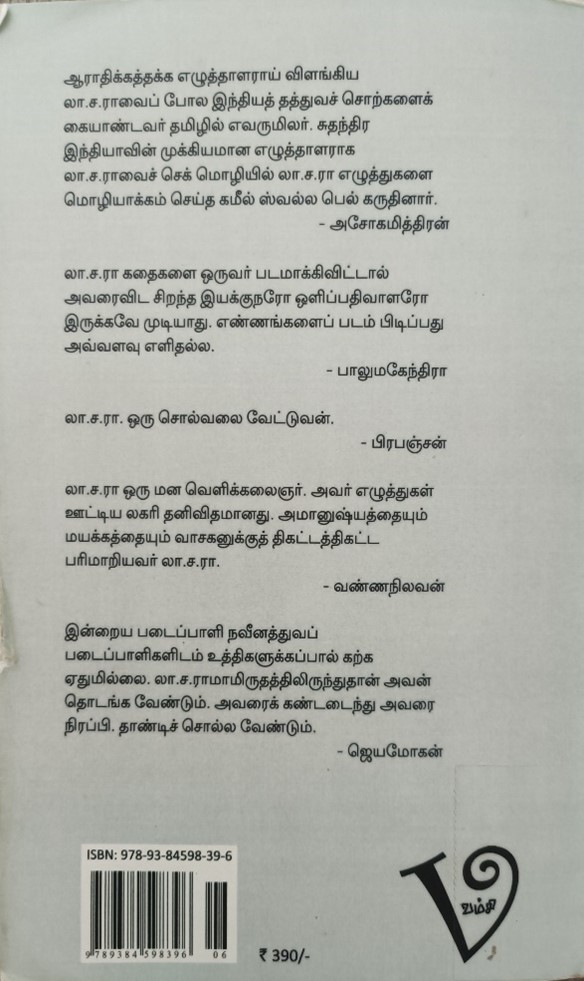 ஆராதிக்கத்தக்க எழுத்தாளராய் விளங்கிய
லா.ச.ராவைப் போல இந்தியத் தத்துவச் சொற்களைக்
கையாண்டவர் தமிழில் எவருமிலர். சுதந்திர
இந்தியாவின் முக்கியமான எழுத்தாளராக
லா.ச.ராவைச் செக் மொழியில் லா.ச.ரா எழுத்துகளை
மொழியாக்கம் செய்த கமீல் ஸ்வல்ல பெல் கருதினார்.
- அசோகமித்திரன்
லா.ச.ரா கதைகளை ஒருவர் படமாக்கிவிட்டால்
அவரைவிட சிறந்த இயக்குநரோ ஒளிப்பதிவாளரோ
இருக்கவே முடியாது. எண்ணங்களைப் படம் பிடிப்பது
அவ்வளவு எளிதல்ல.
- பாலுமகேந்திரா
லா.ச.ரா. ஒரு சொல்வலை வேட்டுவன்.
- பிரபஞ்சன்
லா.ச.ரா ஒரு மன வெளிக்கலைஞர். அவர் எழுத்துகள்
ஊட்டிய லகரி தனிவிதமானது. அமானுஷ்யத்தையும்
மயக்கத்தையும் வாசகனுக்குத் திகட்டத்திகட்ட
பரிமாறியவர் லா.ச.ரா.
- வண்ணநிலவன்
இன்றைய படைப்பாளி நவீனத்துவப்
படைப்பாளிகளிடம் உத்திகளுக்கப்பால் கற்க
ஏதுமில்லை. லா.ச.ராமாமிருதத்திலிருந்துதான் அவன்
தொடங்க வேண்டும். அவரைக் கண்டடைந்து அவரை
நிரப்பி. தாண்டிச் சொல்ல வேண்டும்.
- ஜெயமோகன்
ISBN: 978-93-84598-39-6
9 789384 598396 06
₹ 390/-
வம்சி